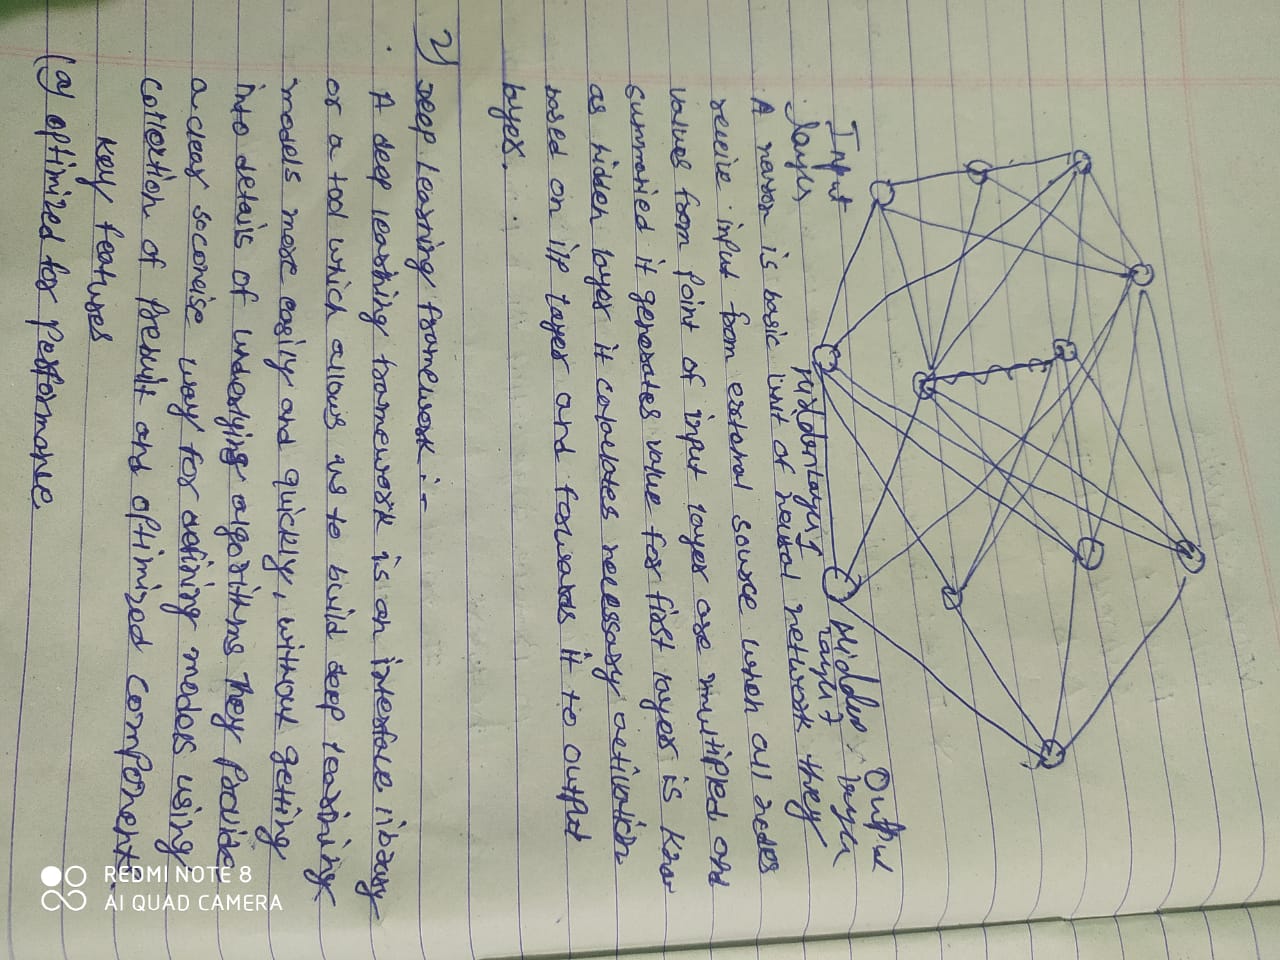 Input
layer
Hidden Layer 1
Hidden
Layer 2
Output
layer
A neuron is basic unit of neural network they
receive input from external source when all nodes
values from point of input layer are multipled and
summaried it generates value for first layer is know
as hidden layer it calculates necessary activation
based on i/p layer and forwards it to output
layer.
2) Deep Learning framework :-
A deep learning framework is an interface library
or a tool which allows us to build deep learning
models more easily and quickly, without getting
into details of underlying algorithms They provide
a clear so concise way for defining models using
collection of prebuilt and optimized components.
Key features
(a) optimized for performance
REDMI NOTE 8
AI QUAD CAMERA